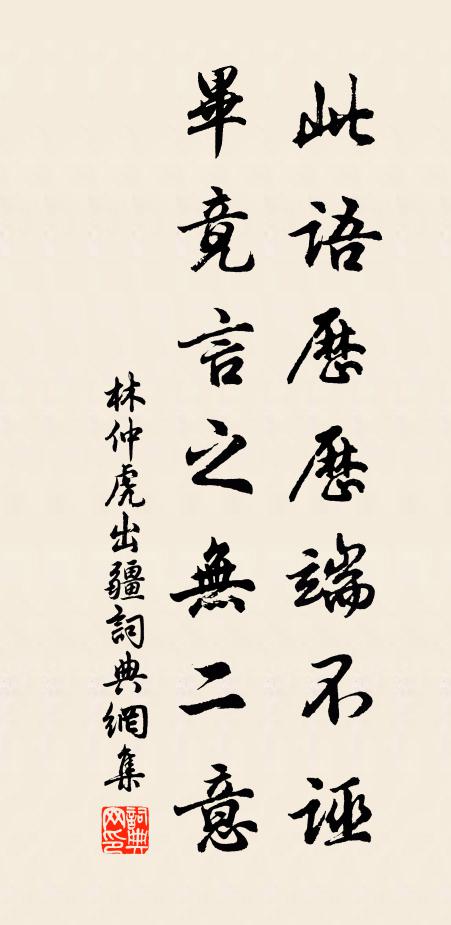 此語歷歷端不誣
畢竟言之無二意
林仲虎出疆詞典網集
詞典網印